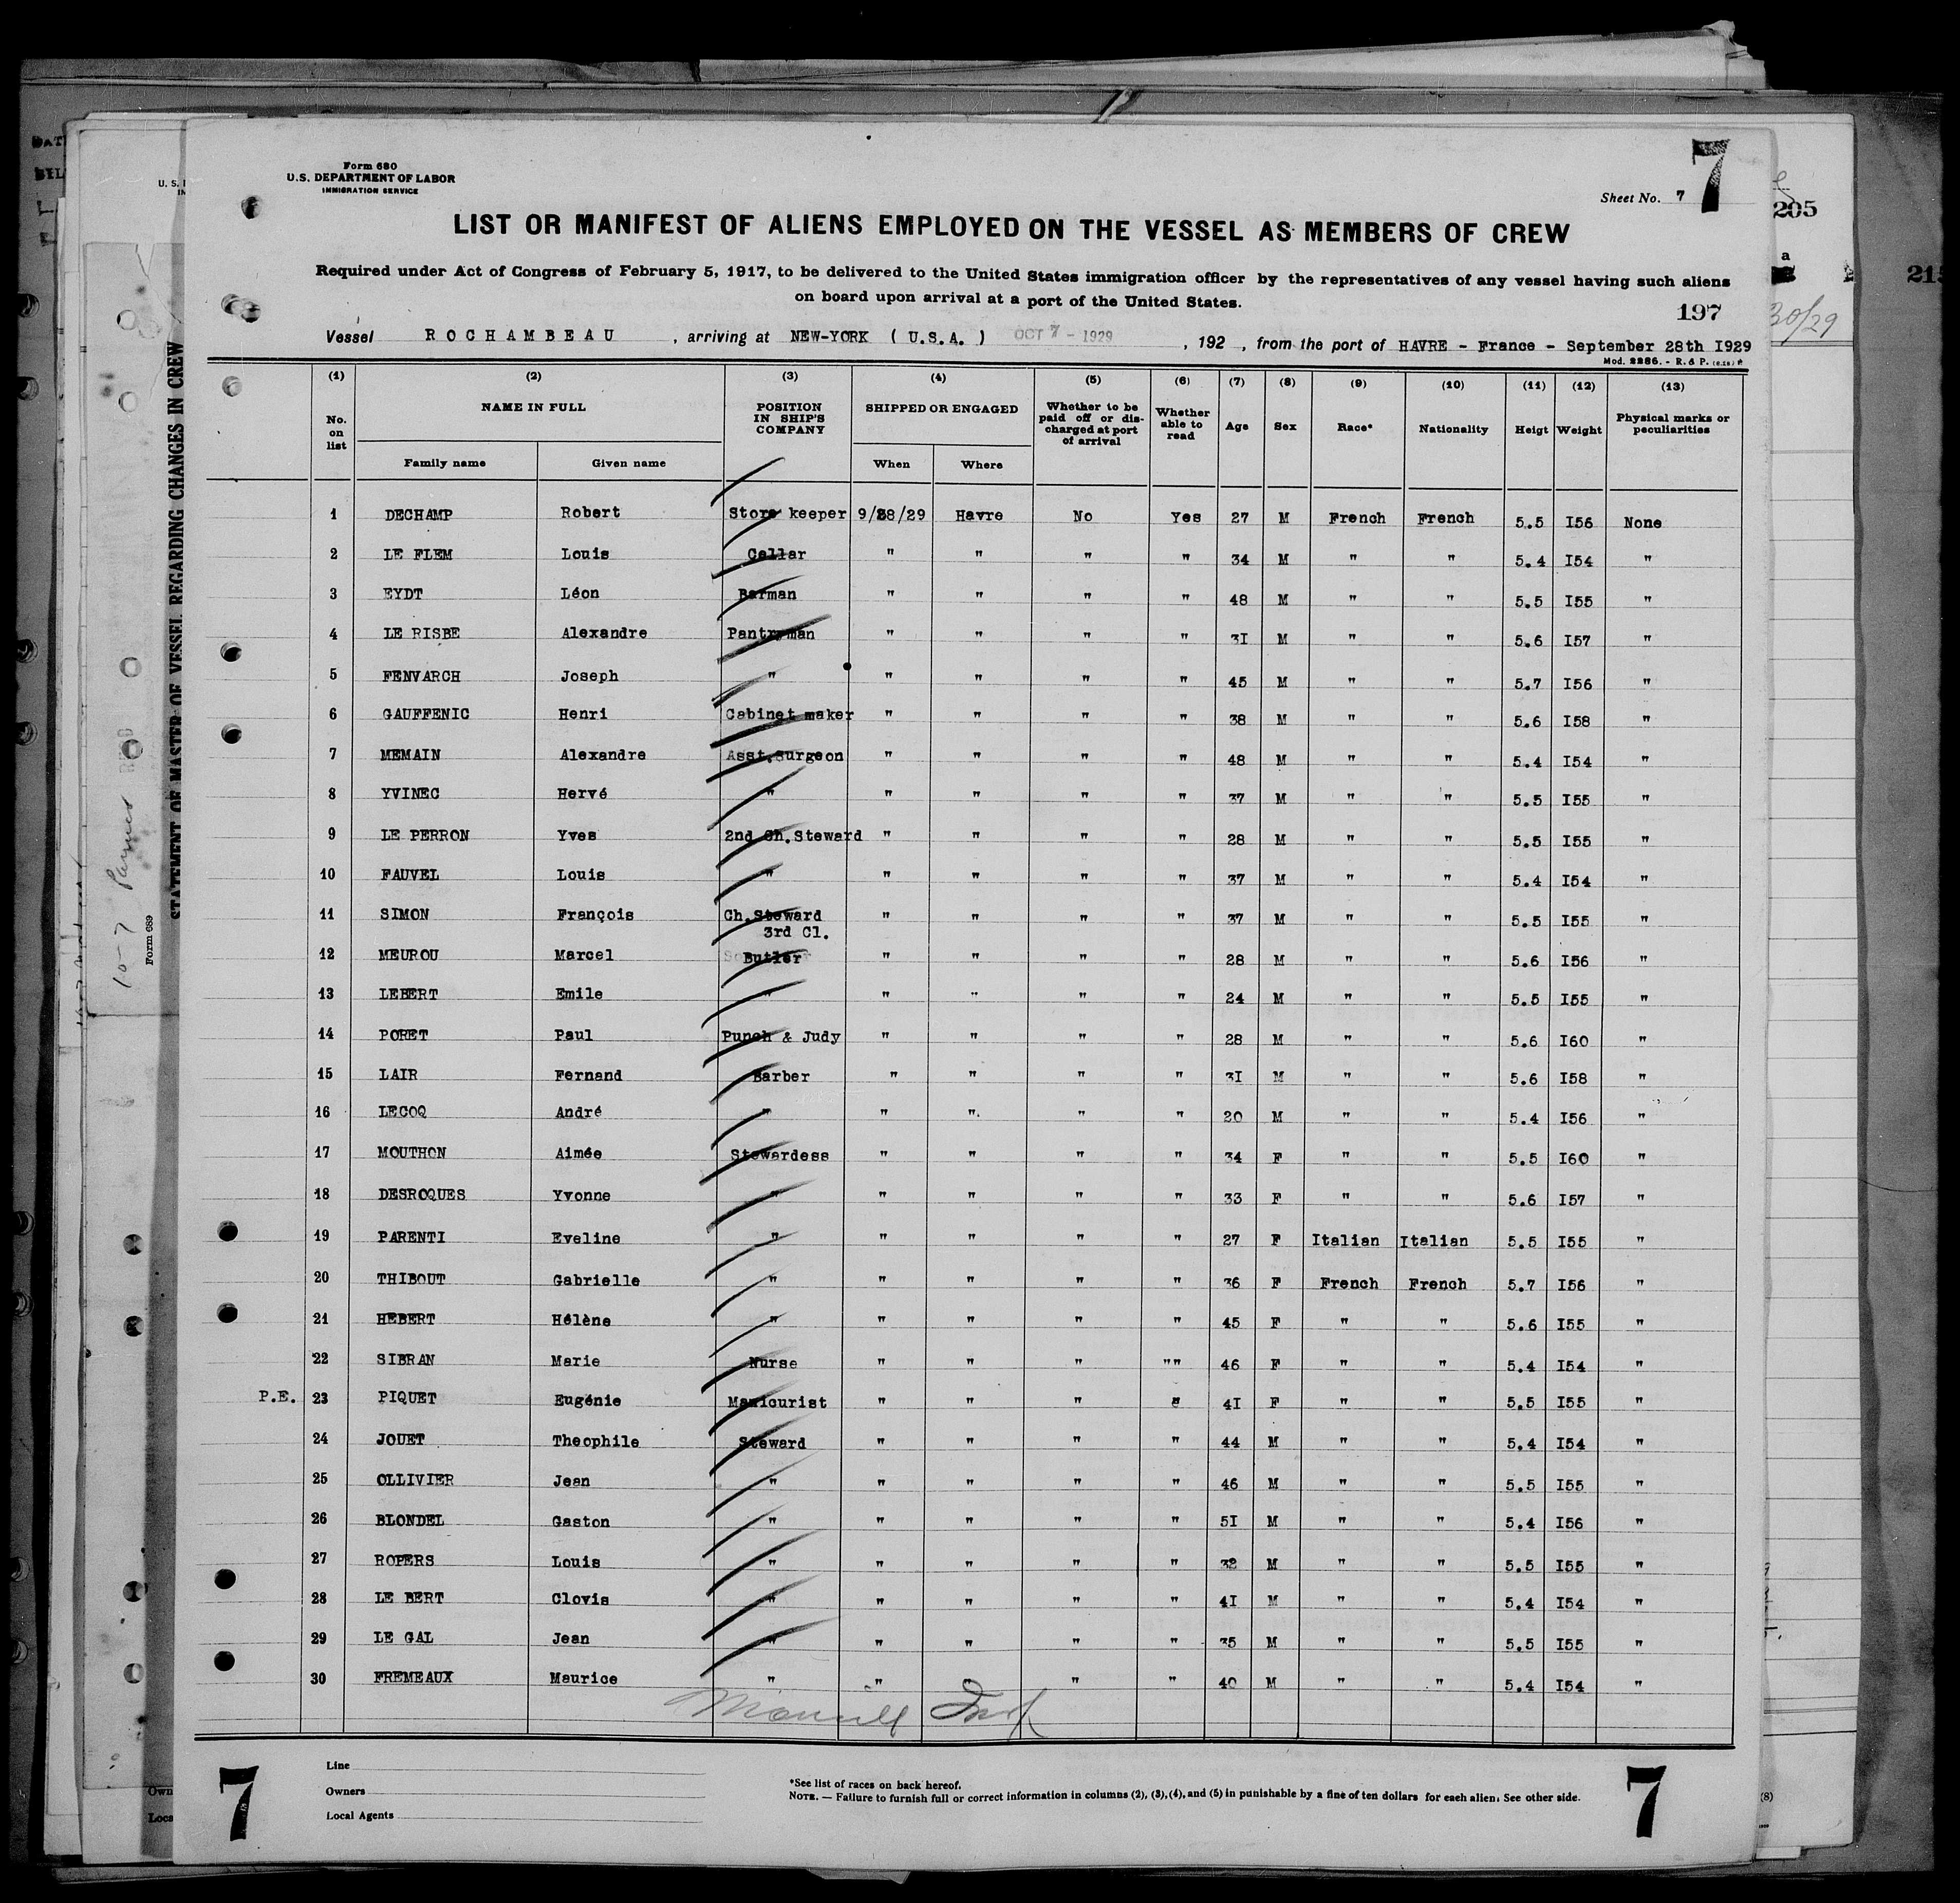 Form 680
U.S. DEPARTMENT OF LABOR
IMMIGRATION SERVICE
7
Sheet No. 7
LIST OR MANIFEST OF ALIENS EMPLOYED ON THE VESSEL AS MEMBERS OF CREW
Required under Act of Congress of February 5, 1917, to be delivered to the United States immigration officer by the representatives of any vessel having such aliens
on board upon arrival at a port of the United States.
197
Vessel ROCHAMBEAU , arriving at NEW-YORK ( U.S.A. ) OCT 7 - 1929 , 192 , from the port of HAVRE - France - September 28th I929
Mod. 2286. - R. & P.
(1) (2) (3) (4) (5) (6) (7) (8) (9) (10) (11) (12) (13)
No. on list NAME IN FULL Family name Given name POSITION IN SHIP'S COMPANY SHIPPED OR ENGAGED When Where Whether to be paid off or discharged at port of arrival Whether able to read Age Sex Race* Nationality Heigt Weight Physical marks or peculiarities
1 DECHAMP Robert Store keeper 9/28/29 Havre No Yes 27 M French French 5.5 I56 None
2 LE FLEM Louis Cellar " " " " 34 M " " 5.4 I54 "
3 EYDT Léon Barman " " " " 48 M " " 5.5 I55 "
4 LE RISBE Alexandre Pantryman " " " " 3I M " " 5.6 I57 "
5 FENVARCH Joseph " " " " " 45 M " " 5.7 I56 "
6 GAUFFENIC Henri Cabinet maker " " " " 38 M " " 5.6 I58 "
7 MEMAIN Alexandre Asst.surgeon " " " " 48 M " " 5.4 I54 "
8 YVINEC Hervé " " " " " 37 M " " 5.5 I55 "
9 LE PERRON Yves 2nd Ch.Steward " " " " 28 M " " 5.5 I55 "
10 FAUVEL Louis " " " " " 37 M " " 5.4 I54 "
11 SIMON François Ch.Steward 3rd Cl. " " " " 37 M " " 5.5 I55 "
12 MEUROU Marcel Butler " " " " 28 M " " 5.6 I56 "
13 LEBERT Emile " " " " " 24 M " " 5.5 I55 "
14 PORET Paul Punch & Judy " " " " 28 M " " 5.6 I60 "
15 LAIR Fernand Barber " " " " 3I M " " 5.6 I58 "
16 LECOQ André " " " " " 20 M " " 5.4 I56 "
17 MOUTHON Aimée Stewardess " " " " 34 F " " 5.5 I60 "
18 DESROQUES Yvonne " " " " " 33 F " " 5.6 I57 "
19 PARENTI Eveline " " " " " 27 F Italian Italian 5.5 I55 "
20 THIBOUT Gabrielle " " " " " 36 F French French 5.7 I56 "
21 HEBERT Hélène " " " " " 45 F " " 5.6 I55 "
22 SIBRAN Marie Nurse " " " "" 46 F " " 5.4 I54 "
P.E. 23 PIQUET Eugénie Manicurist " " " " 4I F " " 5.5 I55 "
24 JOUET Theophile Steward " " " " 44 M " " 5.4 I54 "
25 OLLIVIER Jean " " " " " 46 M " " 5.5 I55 "
26 BLONDEL Gaston " " " " " 5I M " " 5.4 I56 "
27 ROPERS Louis " " " " " 32 M " " 5.5 I55 "
28 LE BERT Clovis " " " " " 4I M " " 5.4 I54 "
29 LE GAL Jean " " " " " 35 M " " 5.5 I55 "
30 FREMEAUX Maurice " " " " " 40 M " " 5.4 I54 "
Line
Owners
Local Agents
*See list of races on back hereof.
NOTE. — Failure to furnish full or correct information in columns (2), (3), (4), and (5) in punishable by a fine of ten dollars for each alien. See other side.
7
7
STATEMENT OF MASTER OF VESSEL REGARDING CHANGES IN CREW
Form 689
205
30/29